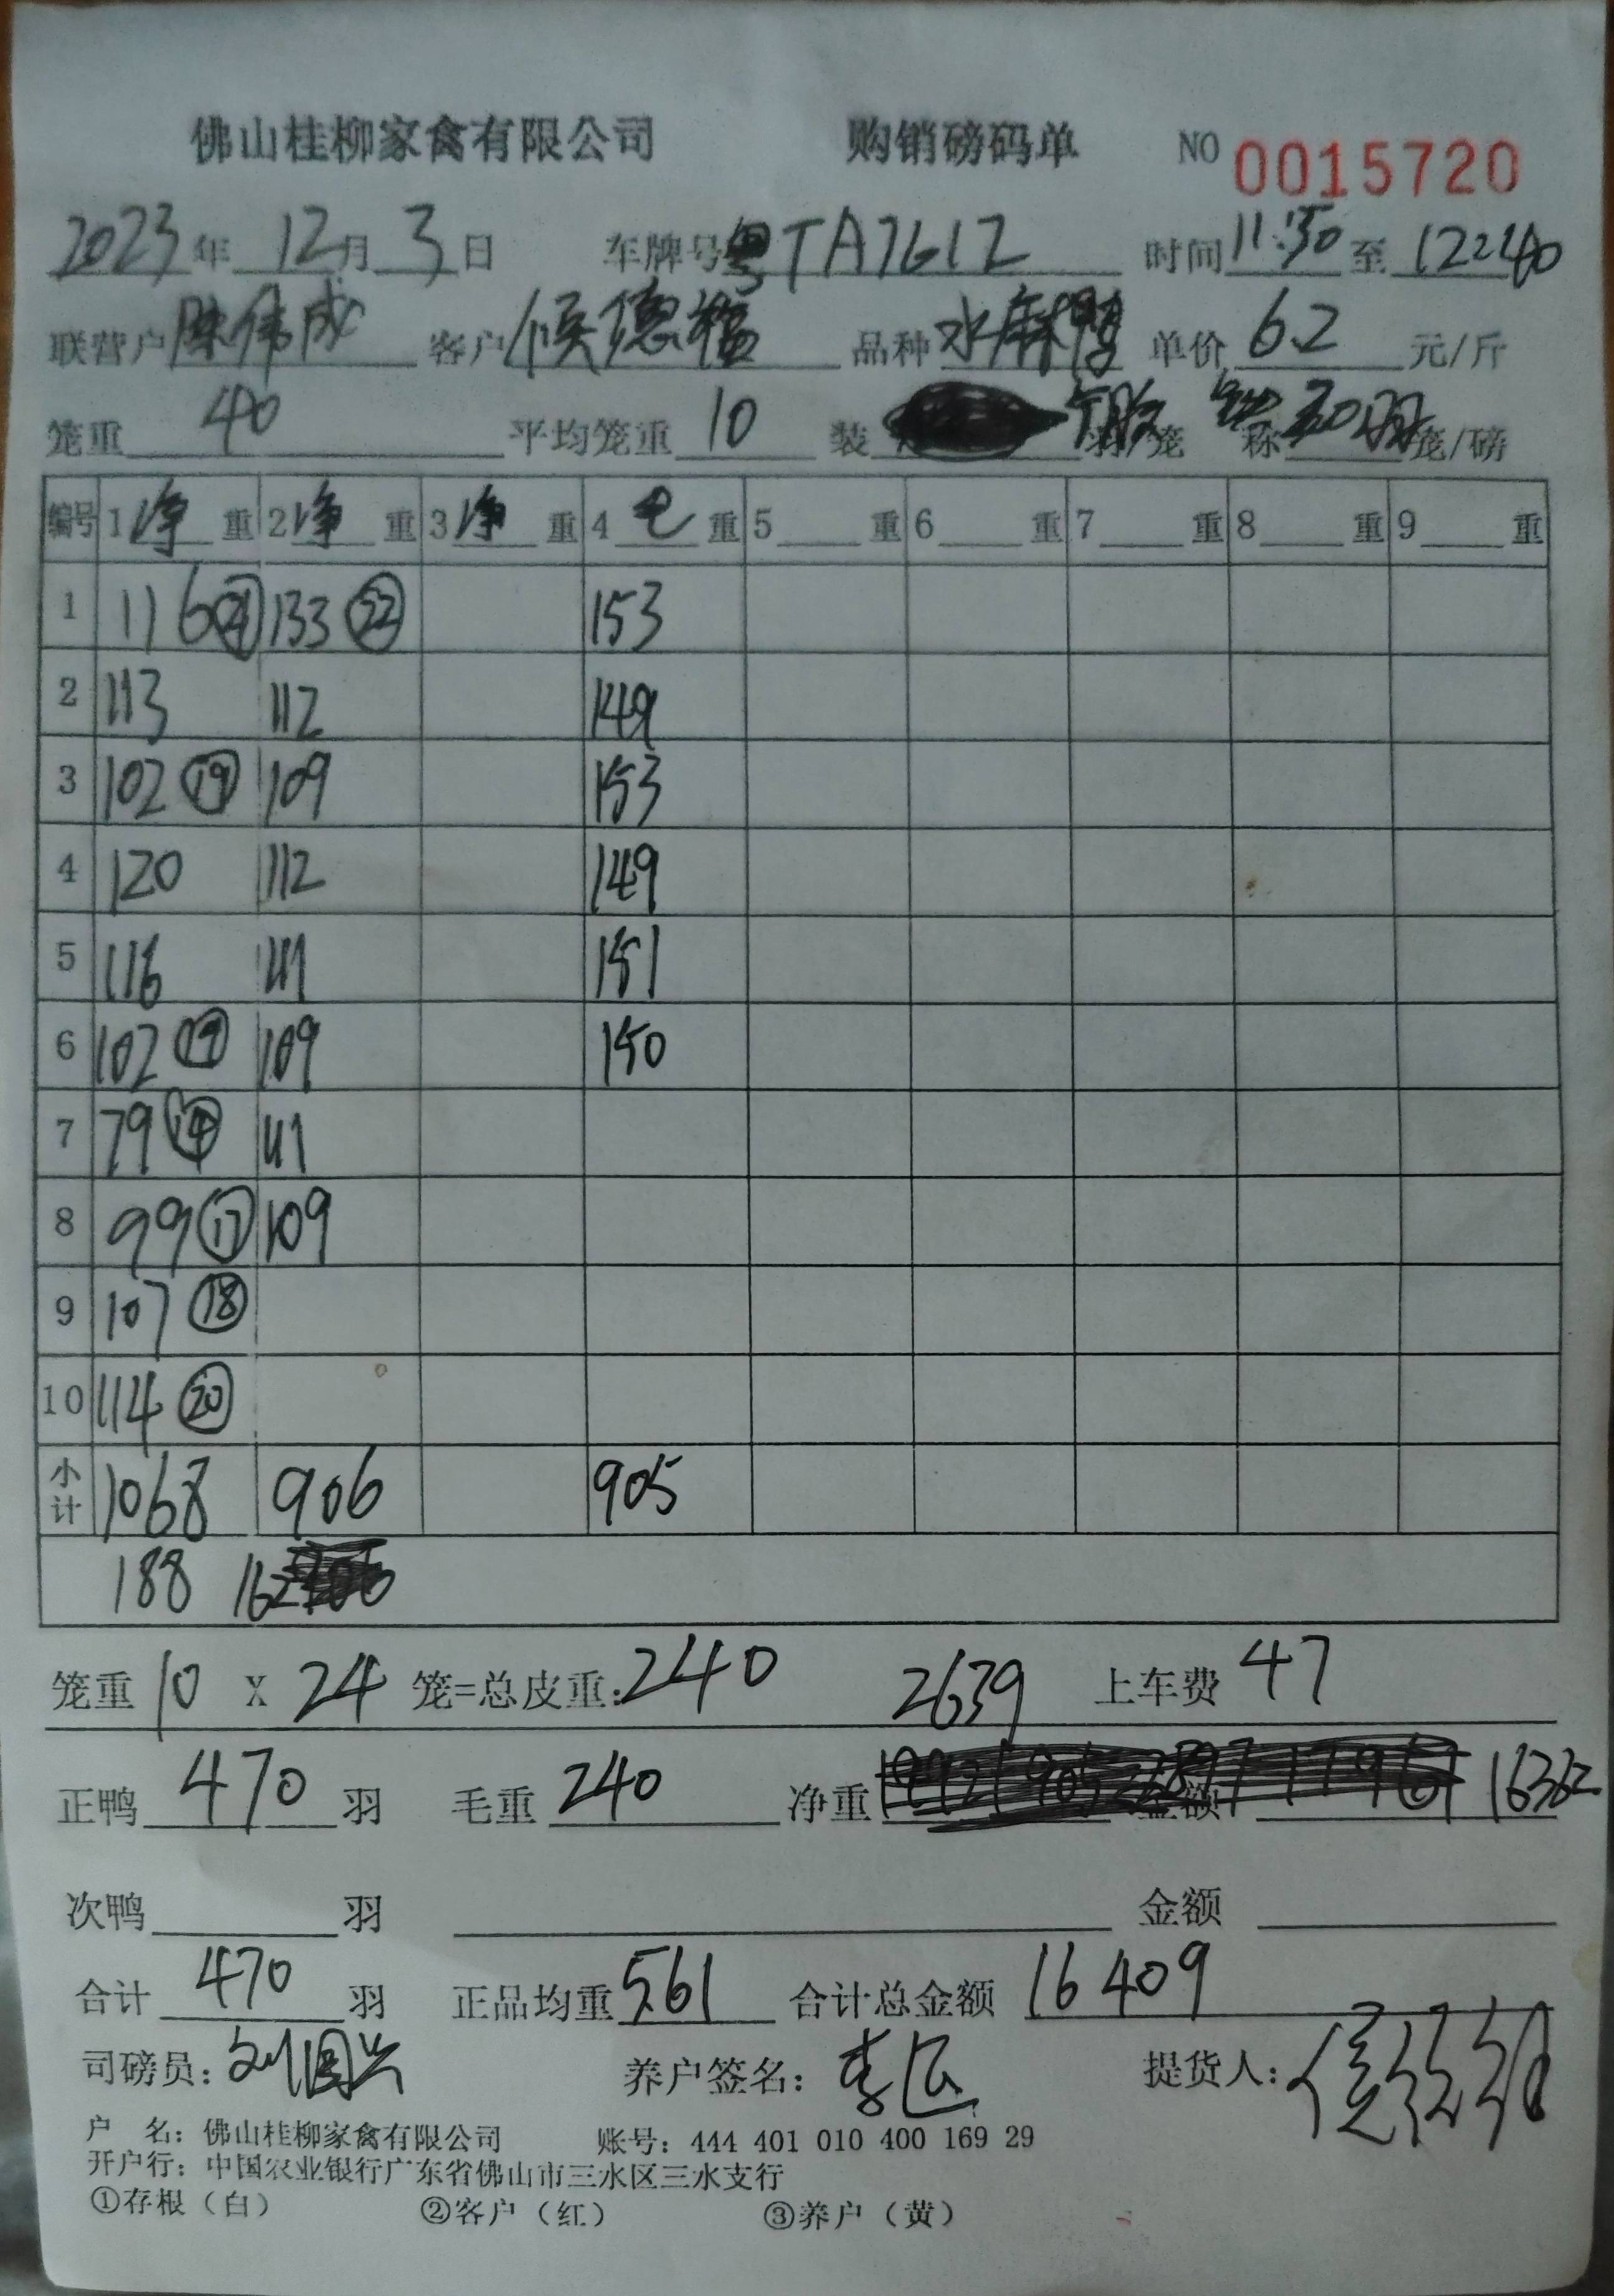 佛山桂柳家禽有限公司 购销磅码单 NO 0015720
2023年12月3日 车牌号粤TA7612 时间11:50至12:40
联营户陈伟成 客户候德 品种水麻鸭 单价6.2元/斤
笼重40 平均笼重10 装 羽/笼 称 笼/磅
编号 1净重 2净重 3净重 4毛重 5重 6重 7重 8重 9重
1 116 ㉑ 133 ㉒ 153
2 113 112 149
3 102 ⑲ 109 153
4 120 112 149
5 116 111 151
6 102 ⑲ 109 150
7 79 ⑭ 111
8 99 ⑰ 109
9 107 ⑱
10 114 ⑳
小计 1068 906 905
188 162
笼重10 X 24笼=总皮重:240 2639 上车费47
正鸭470羽 毛重240 净重 金额 16362
次鸭 羽 金额
合计470羽 正品均重5.61 合计总金额16409
司磅员:刘国兴 养户签名: 提货人:
户 名:佛山桂柳家禽有限公司 账号:444 401 010 400 169 29
开户行:中国农业银行广东省佛山市三水区三水支行
①存根(白) ②客户(红) ③养户(黄)